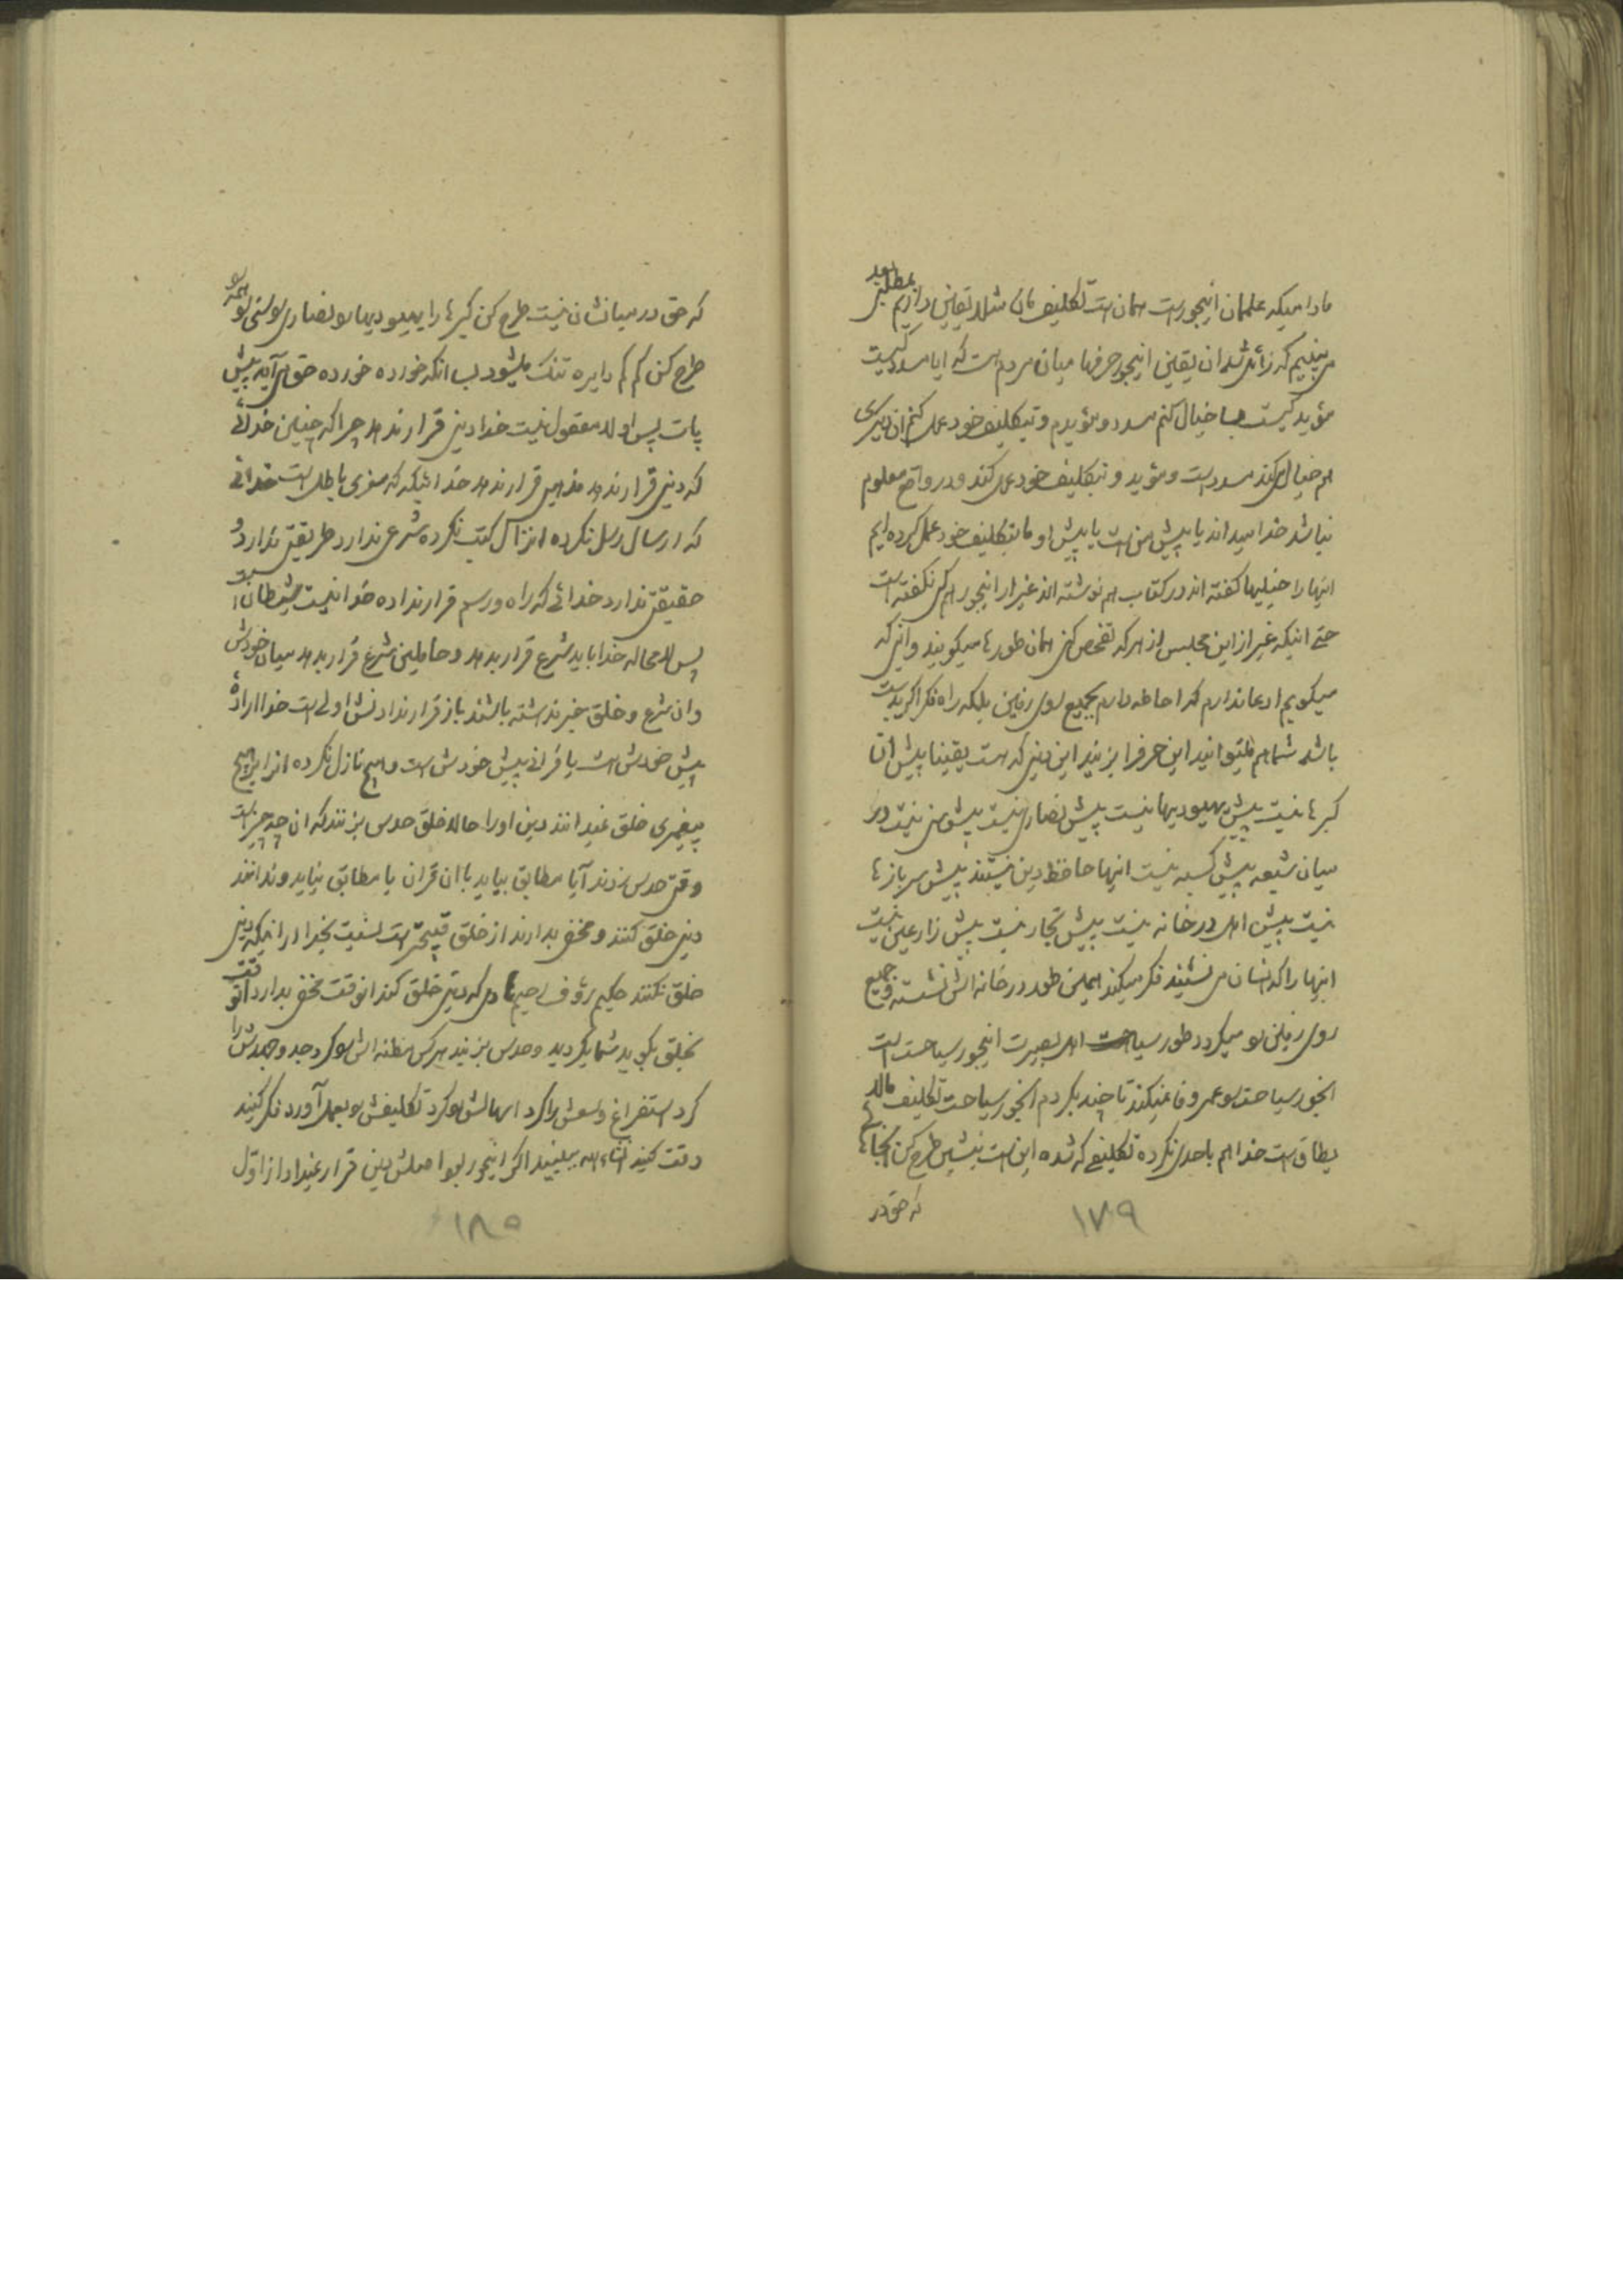 مادامیکه علممان اینجور است همان است تکلیف مان مثلا یقین داریم بمطلبی بعد
می بینیم که زائل شد ان یقین اینجور حرفها میان مردم است که ایا مسدد کیست
مؤید کیست بسا خیال کنم مسددم و مؤیدم و بتکلیف خود عمل کنم ان دیگری
هم خیال میکند مسدد است و مؤید و بتکلیف خود عمل کند و در واقع معلوم
نباشد خدا میداند یا پیش من است یا پیش او ما بتکلیف خود عمل کرده ایم
اینها را خیلیها گفته اند در کتاب هم نوشته اند غیر از اینجور هم کسی نگفته است
حتی اینکه غیر از این مجلس از هر که تفحص کنی همان طورها میگویند و اینی که
میگویم ادعا ندارم که احاطه دارم بجمیع روی زمین بلکه راه فکر اگر بدست
باشد شما هم میتوانید این حرف را بزنید این دینی که هست یقینا پیش ان
گبرها نیست پیش یهودیها نیست پیش نصاری نیست پیش سنی نیست در
میان شیعه پیش کسبه نیست اینها حافظ دین نیستند پیش سربازها
نیست پیش اهل در خانه نیست پیش تجار نیست پیش زارعین نیست
اینها را که انسان می نشیند فکر میکند همین طور در خانه اش نشسته و جمیع
روی زمین رو میگردد طور سیاحت اهل بصیرت اینجور سیاحت است
انجور سیاحت رو عمر وفا نمیکند تا چند بگردم انجور سیاحت تکلیف مالا
یطاق است خدا هم باحدی نکرده تکلیفی که شده این است بنشین طرح کن انجاها
که حق در
١٧٩
که حق در میانشان نیست طرح کن گبرها را یهودیها رو نصاری رو سنی رو همه رو
طرح کن کم کم دایره تنگ میشود بسا انکه خورده خورده حق می آید پیش
پات پس اولا معقول نیست خدا دینی قرار ندهد چرا که چنین خدائی
که دینی قرار ندهد مذهبی قرار ندهد خدا نیست خدائی
که ارسال رسل نکرده انزال کتب نکرده شرعی ندارد طریقتی ندارد و
حقیقتی ندارد خدائی که راه و رسم قرار نداده خدا نیست شیطان است
پس لامحاله خدا باید شرع قرار بدهد و حاملین شرع قرار بدهد میان خودش
وان شرع و خلق خبر نداشته باشند باز قرار ندادنش اولی است خدا اراده
پیش خودش است یا قرانی پیش خودش است و هیچ نازل نکرده انرا بر هیچ
پیغمبری خلق نمیدانند دین او را حالا خلق حدس بزنند که ان چه چیز است
وقتی حدس زدند آیا مطابق بیاید با ان قران یا مطابق نیاید و ندانند
دینی خلق کنند و مخفی بدارند از خلق قبیحتر است نسبت بخدا از اینکه دینی
خلق نکنند حکیم رؤف رحیم که دینی خلق کند انوقت مخفی بدارد انوقت
بخلق بگوید شما بگردید و حدس بزنید هر کس مظنه اش رو کرد جد و جهدش را
کرد استفراغ وسعش را کرد تکلیفش رو بعمل آورد فکر کنید
دقت کنید انشاء الله ببینید اگر اینجور بود اصلش دین قرار نمیداد از اول
١٨٠